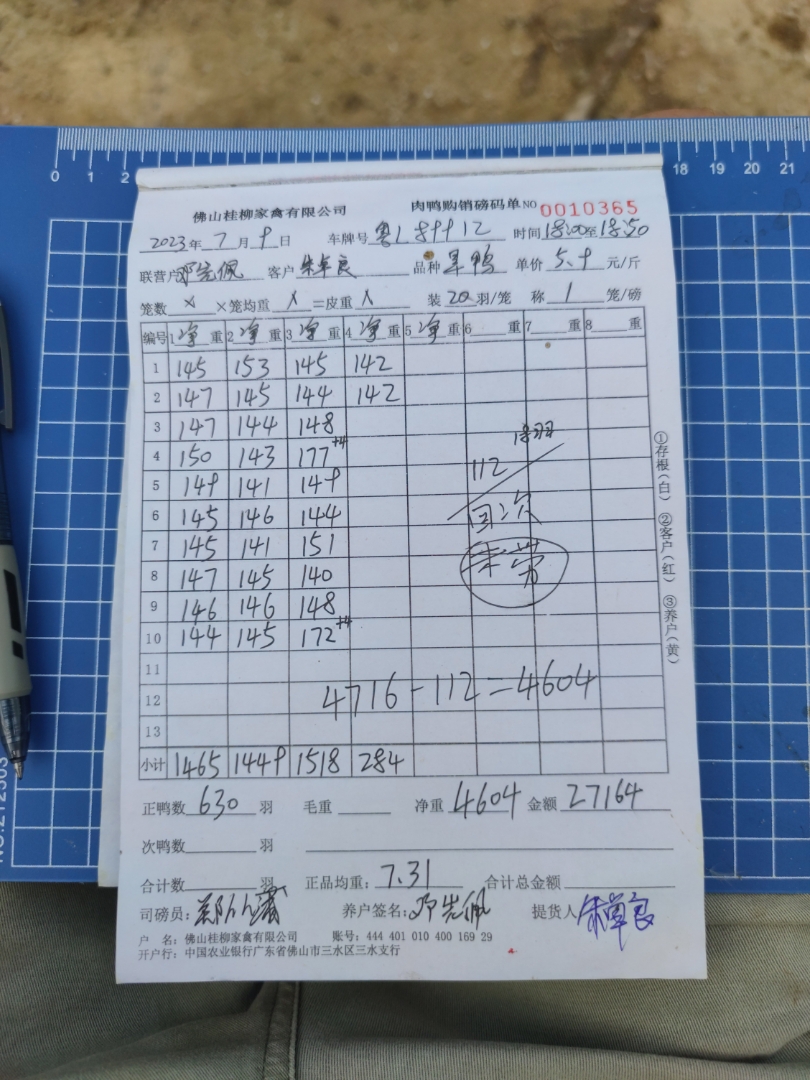 0 1 2 18 19 20 21
佛山桂柳家禽有限公司 肉鸭购销磅码单 NO 0010365
2023年 7月 9日 车牌号 粤L 89912 时间 18:00至18:50
联营户 邓先佩 客户 朱卓良 品种 旱鸭 单价 5.9 元/斤
笼数 × ×笼均重 × =皮重 × 装 20 羽/笼 称 1 笼/磅
编号 1 净 重 2 净 重 3 净 重 4 净 重 5 净 重 6 重 7 重 8 重
1 145 153 145 142
2 147 145 144 142
3 147 144 148
4 150 143 177+4 112 18羽
5 149 141 149
6 145 146 144 回次
7 145 141 151
8 147 145 140
9 146 146 148
10 144 145 172+4
11
12 4716-112=4604
13
小计 1465 1449 1518 284
①存根(白) ②客户(红) ③养户(黄)
正鸭数 630 羽 毛重 净重 4604 金额 27164
次鸭数 羽
合计数 羽 正品均重: 7.31 合计总金额
司磅员: 养户签名: 邓先佩 提货人 朱卓良
户 名: 佛山桂柳家禽有限公司 账号: 444 401 010 400 169 29
开户行: 中国农业银行广东省佛山市三水区三水支行